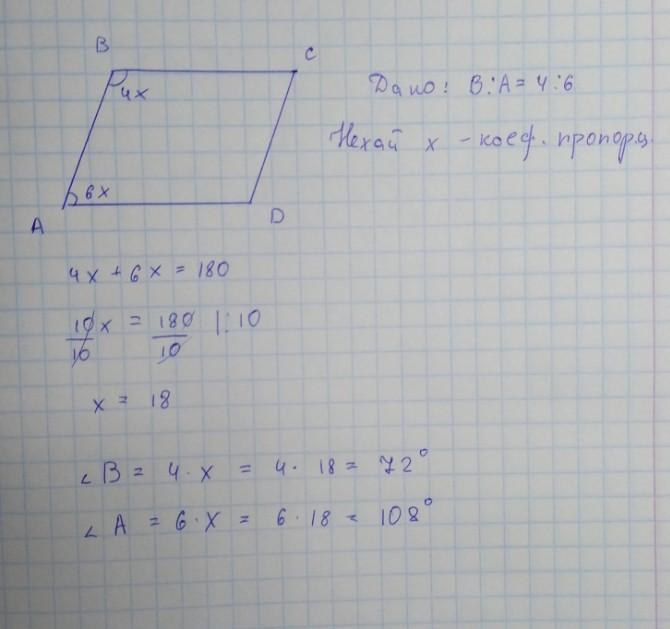 B C
4x
Дано: B:A = 4:6
Нехай x - коеф. пропорц.
6x
A D
4x + 6x = 180
10x/10 = 180/10 |:10
x = 18
∠B = 4·x = 4·18 = 72°
∠A = 6·x = 6·18 = 108°